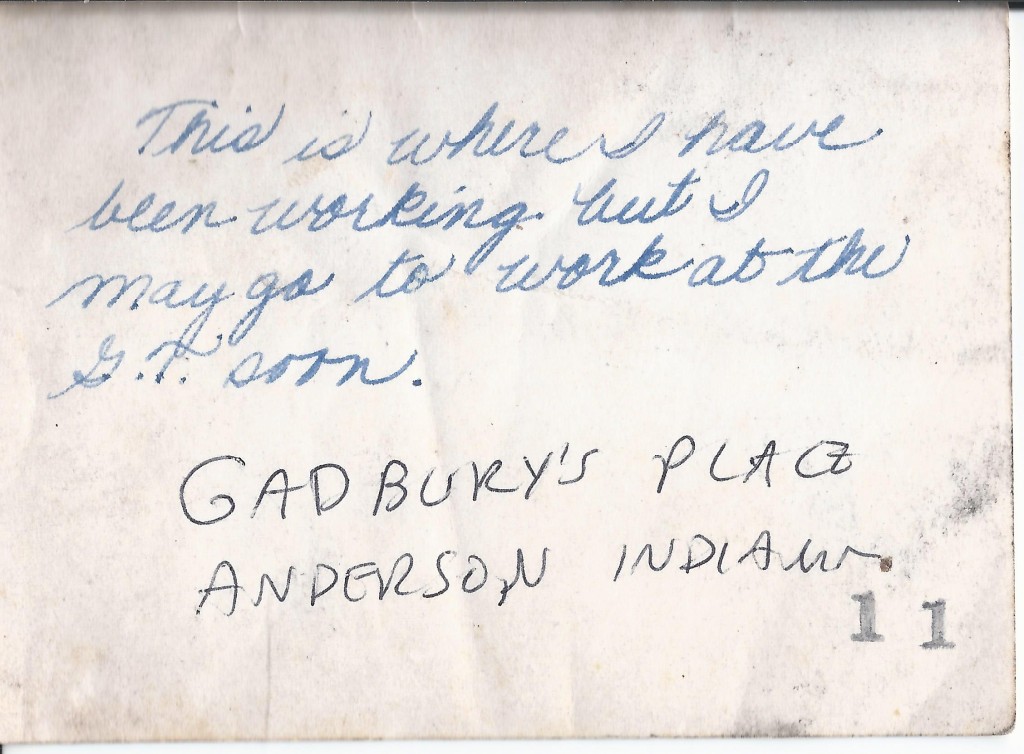 This is where I have
been working but I
may go to work at the
G.T. soon.
GADBURY'S PLACE
ANDERSON, INDIANA
11